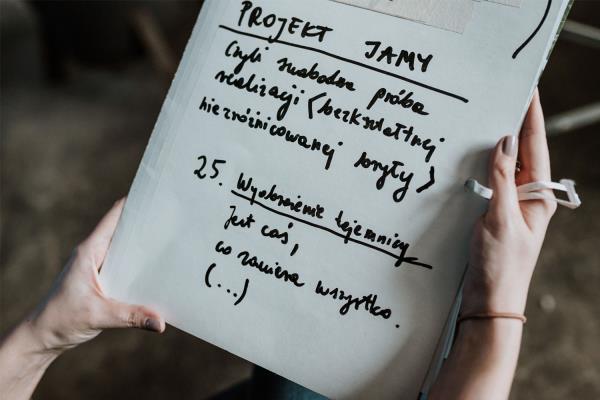 PROJEKT JAMY
Czyli swobodna próba
realizacji (bezkształtnej
niezróżnicowanej bryły)
25. Wyobrażenie tajemnicy
Jest coś,
co zawiera wszystko.
(...)